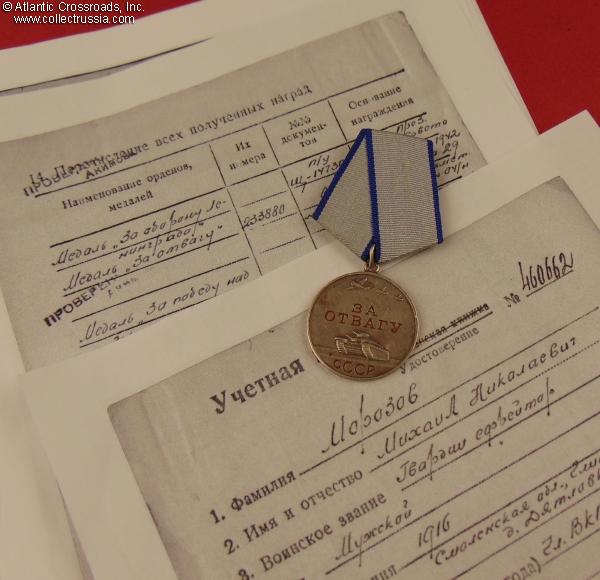 © Atlantic Crossroads, Inc.
www.collectrussia.com
14. Перечисление всех полученных наград
ПРОВЕРЕНО
Наименование орденов, медалей
Их номера
№№ документов
Основание награждения
Медаль „За оборону Ленинграда"
Медаль „За отвагу"
233880
ПРОВЕРЕНО
Медаль „За победу над
ЗА
ОТВАГУ
СССР
Учетная
№ 460662
Удостоверение
Морозов
1. Фамилия
Михаил Николаевич
2. Имя и отчество
Гвардии ефрейтор
3. Воинское звание
Мужской
1916
Смоленская обл.,